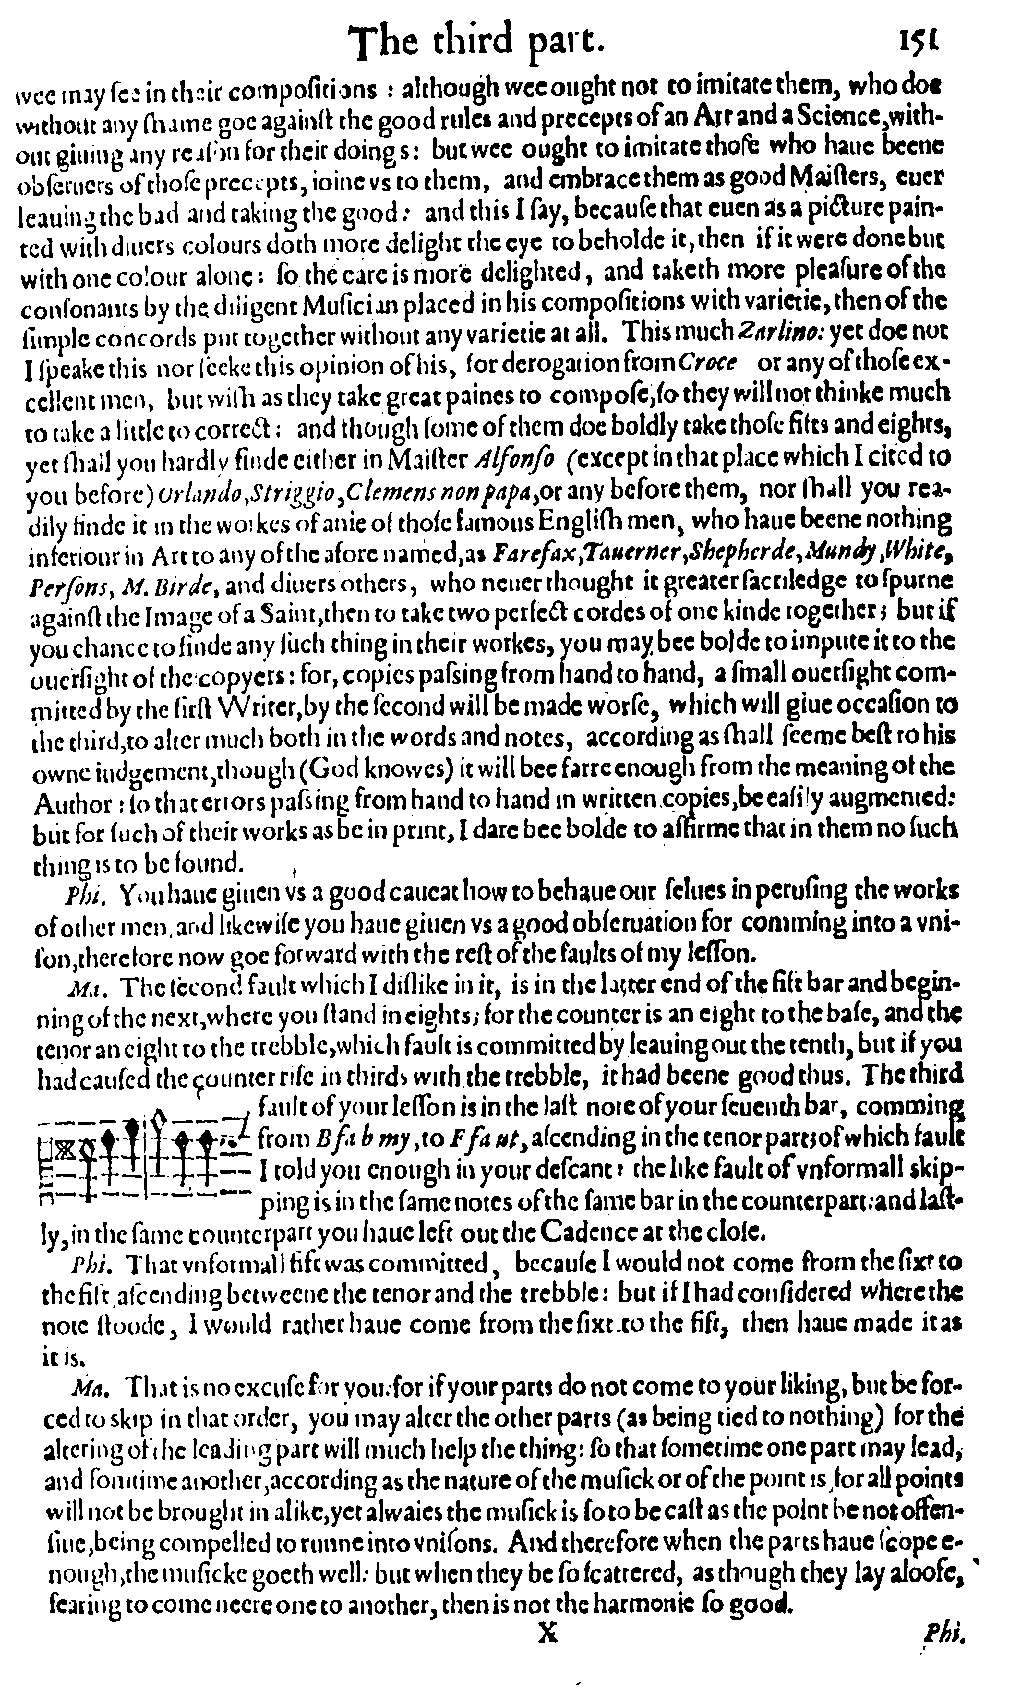 The third part. 151
wee may ſee in their compoſitions : although wee ought not to imitate them, who doe
without any ſhame goe againſt the good rules and precepts of an Art and a Science, with-
out giuing any reaſon for their doings: but wee ought to imitate thoſe who haue beene
obſeruers of thoſe precepts, ioine vs to them, and embrace them as good Maiſters, euer
leauing the bad and taking the good: and this I ſay, becauſe that euen as a picture pain-
ted with diuers colours doth more delight the eye to beholde it, then if it were done but
with one colour alone: ſo the eare is more delighted, and taketh more pleaſure of the
conſonants by the diligent Muſician placed in his compoſitions with varietie, then of the
ſimple concords put together without any varietie at all. This much Zarlino: yet doe not
I ſpeake this nor ſeeke this opinion of his, for derogation from Croce or any of thoſe ex-
cellent men, but wiſh as they take great paines to compoſe, ſo they will not thinke much
to take a little to correct: and though ſome of them doe boldly take thoſe fifts and eights,
yet ſhall you hardly finde either in Maiſter Alfonſo (except in that place which I cited to
you before) Orlando, Striggio, Clemens non papa, or any before them, nor ſhall you rea-
dily finde it in the workes of anie of thoſe famous Engliſh men, who haue beene nothing
inferiour in Art to any of the afore named, as Farefax, Tauerner, Shepherde, Mundy, White,
Perſons, M. Birde, and diuers others, who neuer thought it greater ſacriledge to ſpurne
againſt the Image of a Saint, then to take two perfect cordes of one kinde together; but if
you chance to finde any ſuch thing in their workes, you may bee bolde to impute it to the
ouerſight of the copyers: for, copies paſsing from hand to hand, a ſmall ouerſight com-
mitted by the firſt Writer, by the ſecond will be made worſe, which will giue occaſion to
the third, to alter much both in the words and notes, according as ſhall ſeeme beſt to his
owne iudgement, though (God knowes) it will bee farre enough from the meaning of the
Author: ſo that errors paſsing from hand to hand in written copies, be eaſily augmented:
but for ſuch of their works as be in print, I dare bee bolde to affirme that in them no ſuch
thing is to be found.
Phi. You haue giuen vs a good caueat how to behaue our ſelues in peruſing the works
of other men, and likewiſe you haue giuen vs a good obſeruation for comming into a vni-
ſon, therefore now goe forward with the reſt of the faults of my leſſon.
Ma. The ſecond fault which I diſlike in it, is in the latter end of the fift bar and begin-
ning of the next, where you ſtand in eights; for the counter is an eight to the baſe, and the
tenor an eight to the trebble, which fault is committed by leauing out the tenth, but if you
had cauſed the counter riſe in thirds with the trebble, it had beene good thus. The third
fault of your leſſon is in the laſt note of your ſeuenth bar, comming
from B fa b my, to F fa ut, aſcending in the tenor part; of which fault
I told you enough in your deſcant: the like fault of vnformall skip-
ping is in the ſame notes of the ſame bar in the counterpart: and laſt-
ly, in the ſame counterpart you haue left out the Cadence at the cloſe.
Phi. That vnformall fift was committed, becauſe I would not come from the ſixt to
the fift, aſcending betweene the tenor and the trebble: but if I had conſidered where the
note ſtoode, I would rather haue come from the ſixt to the fift, then haue made it as
it is.
Ma. That is no excuſe for you: for if your parts do not come to your liking, but be for-
ced to skip in that order, you may alter the other parts (as being tied to nothing) for the
altering of the leading part will much help the thing: ſo that ſometime one part may lead,
and ſomtime another, according as the nature of the muſick or of the point is, for all points
will not be brought in alike, yet alwaies the muſick is ſo to be caſt as the point be not offen-
ſiue, being compelled to runne into vniſons. And therefore when the parts haue ſcope e-
nough, the muſicke goeth well: but when they be ſo ſcattered, as though they lay alooſe,
fearing to come neere one to another, then is not the harmonie ſo good.
X Phi.